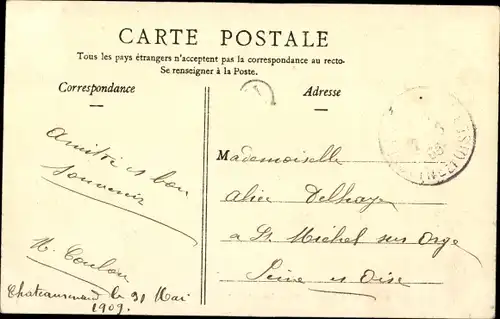 CARTE POSTALE
Tous les pays étrangers n'acceptent pas la correspondance au recto-
Se renseigner à la Poste.
Correspondance
Adresse
Amitié et bon
souvenir
Mademoiselle
Alice Delhaye
a St. Michel sur Orge
Seine et Oise
M. Coulon
le 31 Mai
1909.